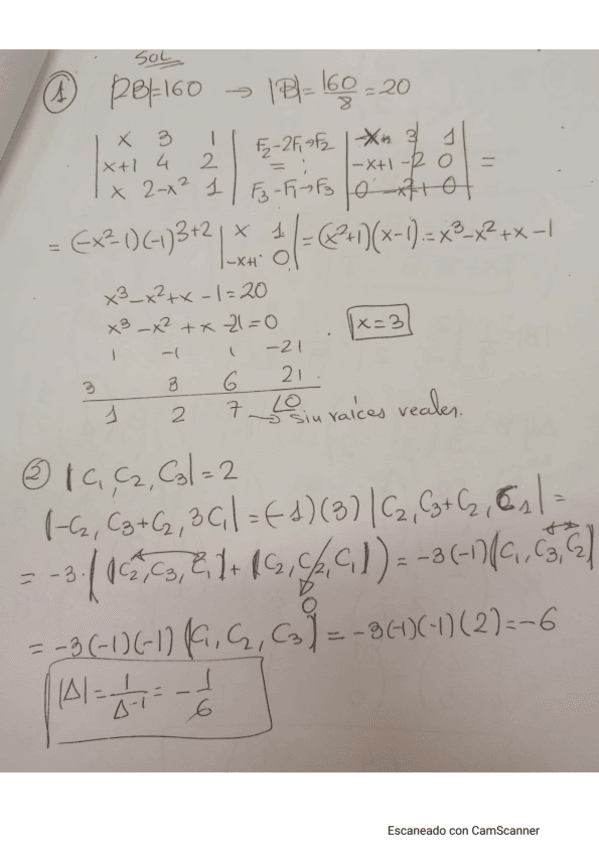 SOL
① |2B|=160 → |B|=160/8=20
| x 3 1 | F₂-2F₁→F₂ | x 3 1 |
| x+1 4 2 | = ; | -x+1 -2 0 | =
| x 2-x² 1 | F₃-F₁→F₃ | 0 -x²-1 0 |
= (-x²-1)(-1)³⁺² | x 1 | = (x²+1)(x-1) = x³-x²+x-1
| -x+1 0 |
x³-x²+x-1=20
x³-x²+x-21=0 . x=3
1 -1 1 -21
3 3 6 21
1 2 7 0
→ sin raíces reales.
② |C₁, C₂, C₃|=2
|-C₂, C₃+C₂, 3C₁|=(-1)(3)|C₂, C₃+C₂, C₁|=
= -3·(|C₂, C₃, C₁|+|C₂, C₂, C₁|) = -3(-1)|C₁, C₃, C₂|
0
= -3(-1)(-1)|C₁, C₂, C₃| = -3(-1)(-1)(2)=-6
|Δ|=1/Δ⁻¹=-1/6
Escaneado con CamScanner